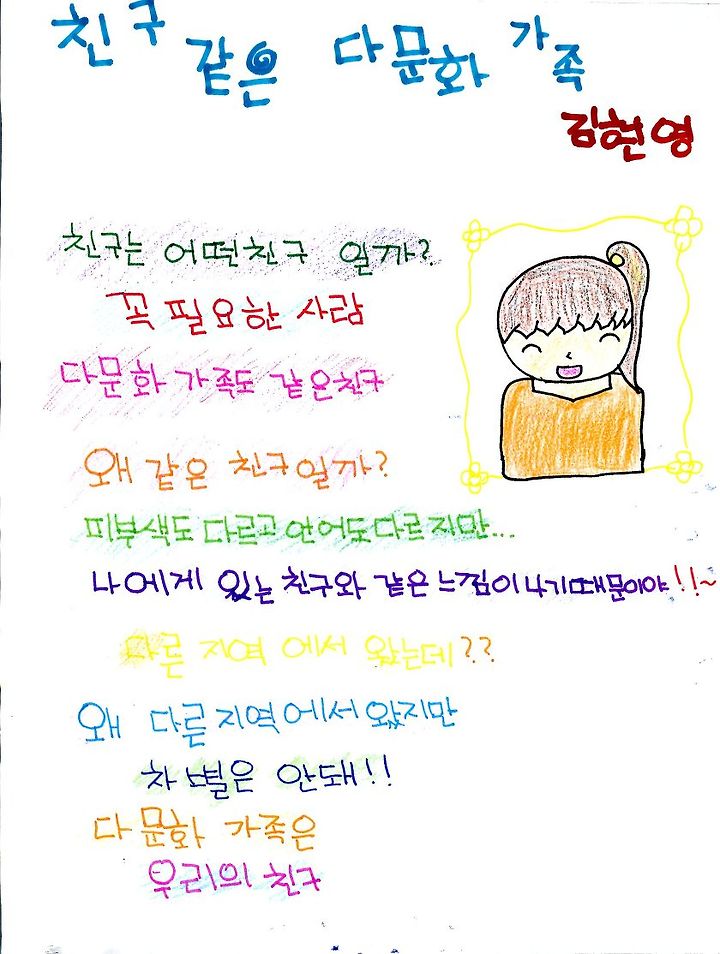 친구 같은 다문화 가족
김현영
친구는 어떤친구 일까?
꼭 필요한 사람
다문화 가족도 같은친구
왜 같은 친구일까?
피부색도 다르고 언어도다르지만...
나에게 있는 친구와 같은 느낌이 나기때문이야!!~
다른 지역 에서 왔는데??
왜 다른지역에서왔지만
차별은 안돼!!
다문화 가족은
우리의 친구